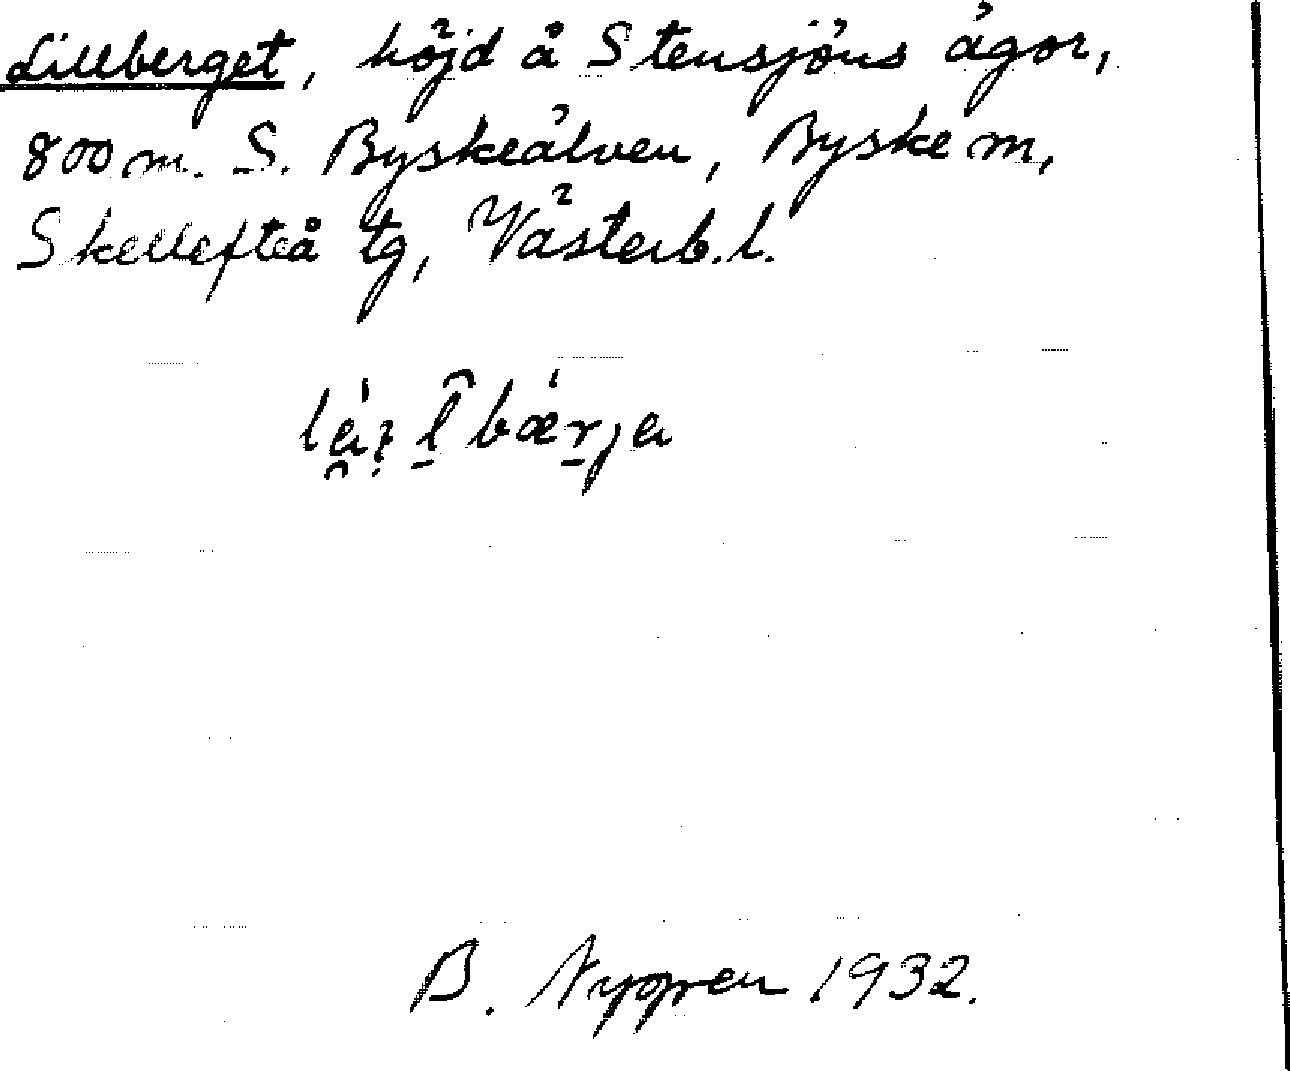 Lillberget, höjd å Stensjöns ägor,
800 m. S. Byskeälven, Byske m,
Skellefteå tg, Västerb. l.
B. Nygren 1932.